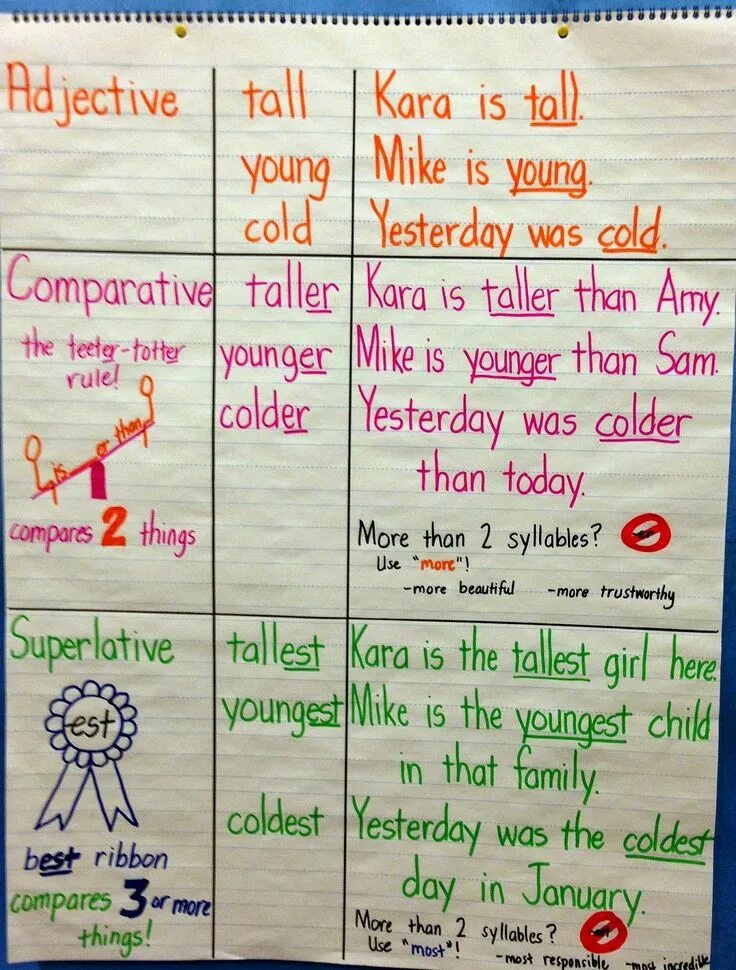 Adjective
tall
Kara is tall.
young
Mike is young.
cold
Yesterday was cold.
Comparative
the teeter-totter
rule!
is or than
compares 2 things
taller
Kara is taller than Amy.
younger
Mike is younger than Sam.
colder
Yesterday was colder
than today.
More than 2 syllables? er
Use "more"!
-more beautiful -more trustworthy
Superlative
est
best ribbon
compares 3 or more
things!
tallest
Kara is the tallest girl here.
youngest
Mike is the youngest child
in that family.
coldest
Yesterday was the coldest
day in January.
More than 2 syllables?
Use "most"!
-most responsible -most incredible